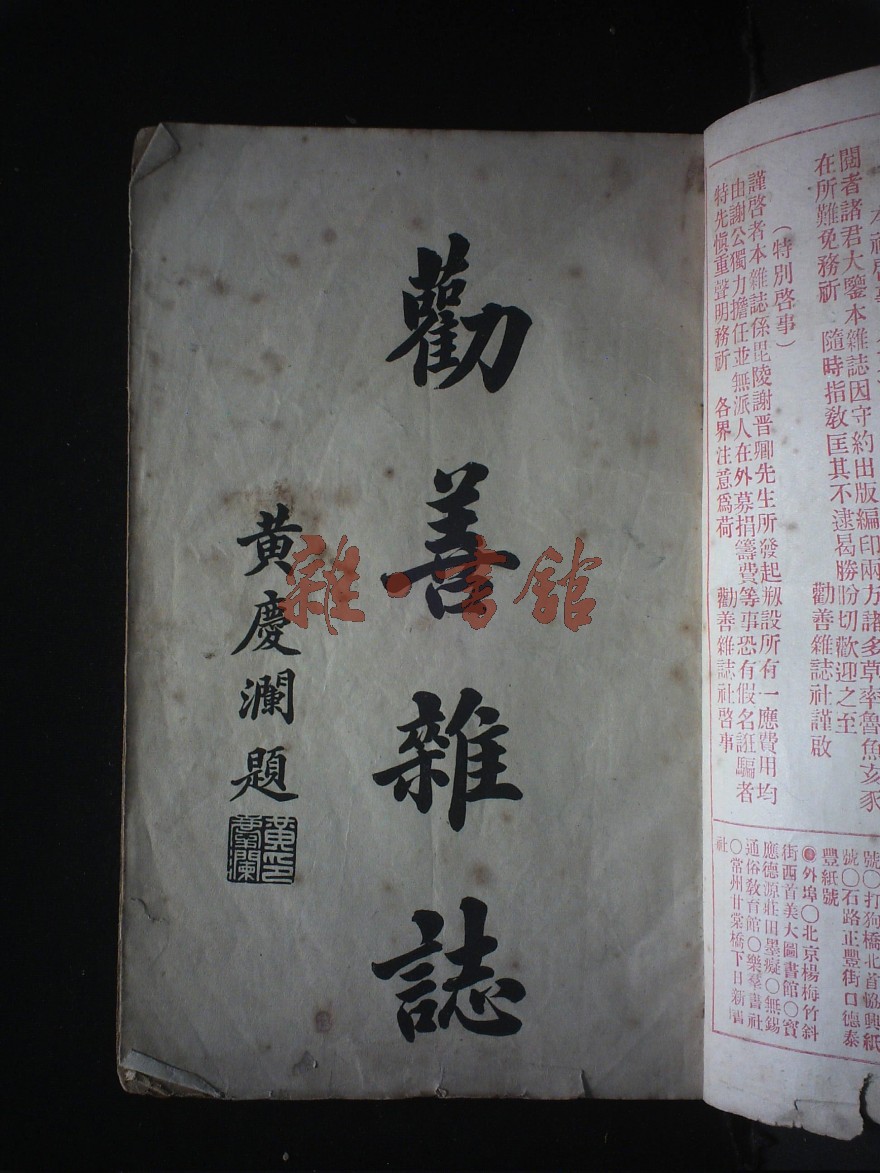 閱者諸君大鑒本雜誌因守約出版編印兩方諸多草率魯魚亥豕
在所難免務祈 隨時指教匡其不逮曷勝盼切歡迎之至
勸善雜誌社謹啟
(特別啓事)
謹啓者本雜誌係毘陵謝晋卿先生所發起剏設所有一應費用均
由謝公獨力擔任並無派人在外募捐籌費等事恐有假名誑騙者
特先愼重聲明務祈 各界注意爲荷 勸善雜誌社啓事
號○打狗橋北首協興紙
號○石路正豐街口德泰
豐紙號
◉外埠○北京楊梅竹斜
街西首美大圖書館○寶
應德源莊田墨癡○無錫
通俗敎育館○樂羣書社
○常州甘棠橋下日新
社
勸善雜誌
黃慶瀾題
雜·書館